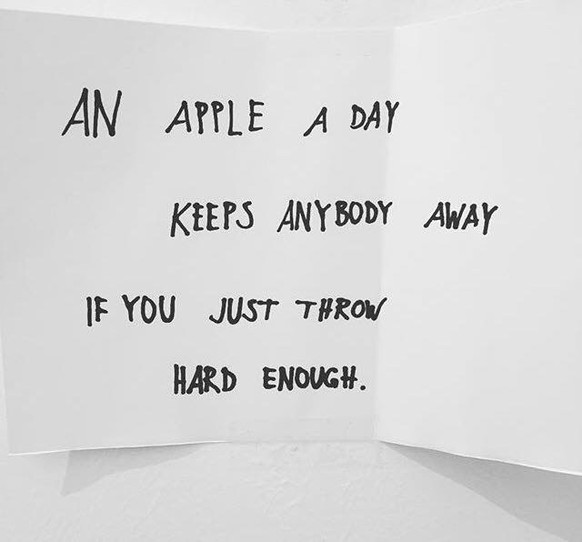 AN APPLE A DAY
KEEPS ANYBODY AWAY
IF YOU JUST THROW
HARD ENOUGH.